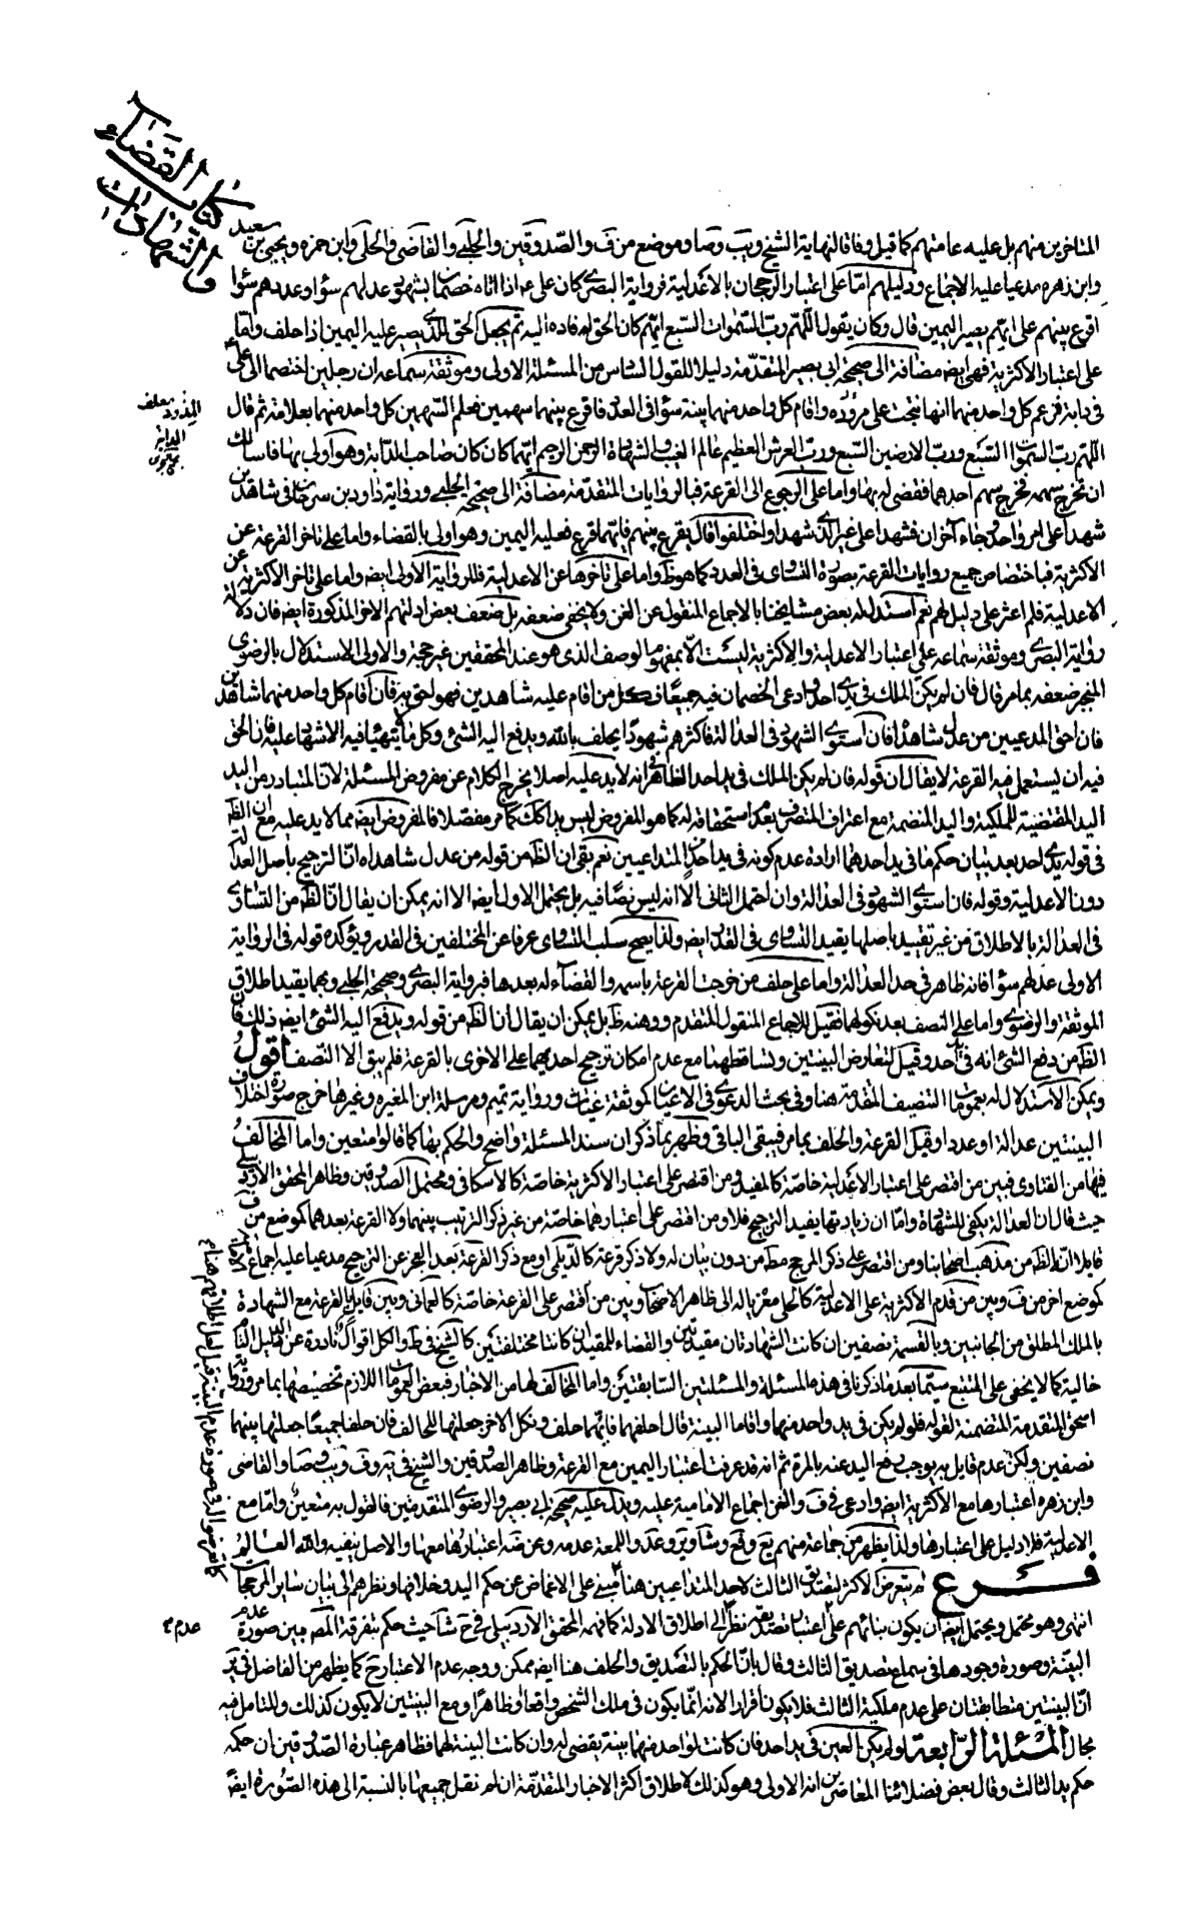 كتاب القضاء
والشهادات
المتاخرين منهم بل عليه عامتهم كما قيل وفاقا لنهاية الشيخ ويب وصا وموضع من ف والصدوقين والحلبي والقاضي والحلي وابن حمزه ويحيى بن سعيد
وابن زهره مدعيا عليه الاجماع ودليلهم امّا على اعتبار الرجحان بالاعدلية فرواية البصري كان على ع اذا اتاه خصمان بشهود عدلهم سواء وعددهم سواء
اقرع بينهم على ايّهم يصير اليمين قال وكان يقول اللّهم ربّ السّموات السّبع ايّهم كان الحق له فادّه اليه ثم يجعل الحق للذى يصير عليه اليمين اذا حلف وامّا
على اعتبار الاكثرية فهى ايض مضافة الى صحيحة ابى بصير المتقدّمة دليلا للقول السّادس من المسئلة الاولى وموثقة سماعه ان رجلين اختصما الى على ع
فى دابة فزعم كل واحد منهما انها نتجت على مزوده واقام كل واحد منهما بينة سواء فى العدد فاقرع بينهما سهمين فعلم السّهمين كل واحد منهما بعلامة ثم قال
اللّهم ربّ السّموات السّبع وربّ الارضين السّبع وربّ العرش العظيم عالم الغيب والشهادة الرحمن الرحيم ايّهما كان صاحب الدّابة وهو اولى بها فاسالك
ان تخرج سهمه فخرج سهم احدهما فقضى له بها واما على الرجوع الى القرعة فبالروايات المتقدّمة مضافة الى صحيحة الحلبي ورواية داود بن سرحان فى شاهدين
شهدا على امر واحد وجاء آخران فشهدا على غير الّذى شهدا واختلفوا قال يقرع بينهم فايّهما قرع فعليه اليمين وهو اولى بالقضاء واما على تاخر القرعة عن
الاكثرية فباختصاص جميع روايات القرعة بصورة التساوى فى العدد كما هو ظ واما على تاخرها عن الاعدلية فللرواية الاولى ايض واما على تاخر الاكثرية عن
الاعدلية فلم اعثر على دليل لهم نعم استدل له بعض مشايخنا بالاجماع المنقول عن الغنية ولا يخفى ضعفه بل ضعف بعض ادلتهم الاخر المذكورة ايض فان دلالة
رواية البصري وموثقة سماعه على اعتبار الاعدلية والاكثرية ليست الّا بمفهوم الوصف الذى هو عند المحققين غير حجة والاولى الاستدلال بالرضوى
المنجبر ضعفه بما مر قال فان لم يكن الملك فى يدى احد وادعى الخصمان فيه جميعًا فكل من اقام عليه شاهدين فهو احق به فان اقام كل واحد منهما شاهدين
فان احق المدعيين من عدل شاهداه فان استوى الشهود فى العدالة فاكثرهم شهودًا يحلف بالله ويدفع اليه الشئ وكل ما لا يتهيّأ فيه الاشهاد عليه فان الحق
فيه ان يستعمل فيه القرعة لا يقال ان قوله فان لم يكن الملك فى يد احد الظاهر فى انه لا يد عليه اصلا يخرج الكلام عن مفروض المسئلة لانّا المتبادر من اليد
اليد المقتضية للملكية واليد المنضمة مع اعتراف المتصرف بعدم استحقاقه له كما هو المفروض ليس يدا كك كما مر مفصّلا فالمفروض ايض مما لا يد عليه مع ان الظ
فى قوله يدى احد بعد بيان حكم ما فى يد احدهما ارادة عدم كونه فى يد احد من المتداعيين نعم بقى ان الظ من قوله من عدل شاهداه انّا لترجيح باصل العدالة
دون الاعدلية وقوله فان استوى الشهود فى العدالة وان احتمل الثانى الّا انه ليس نصّا فيه بل يحتمل الاول ايض الا انه يمكن ان يقال انّا لظ من التساوى
فى العدالة بالاطلاق من غير تقييد باصلها يفيد التساوى فى القدر ايض ولذا يصح سلب التساوى عرفا عن المختلفين فى القدر ويؤكده قوله فى الرواية
الاولى عدلهم سواء فانه ظاهر فى حد العدالة واما على حلف من خرجت القرعة باسمه والقضاء له بعدها فبرواية البصري وصحيحة الحلبي وبهما يقيد اطلاق
الموثقة والرضوى واما على النصف بعد نكولهما فقيل للاجماع المنقول المتقدم ووهنه ظ بل يمكن ان يقال ان الظ من قوله ويدفع اليه الشئ ايض ذلك فان
الظ من دفع الشئ انه فى يد احد وقيل لتعارض البينتين وتساقطهما مع عدم امكان ترجيح احديهما على الاخرى بالقرعة فلم يبق الا النّصف اقول
ويمكن الاستدلال له بعمومات التنصيف المتقدمة هنا وفى بحث الدعوى فى الاعيان كموثقة غياث ورواية تميم ومرسلة ابن المغيرة وغيرها خرج صورة اختلاف
البينتين عدالة او عددا وقبل القرعة والحلف بما مر فيبقى الباقى وظهر بما ذكر ان سند المسئلة واضح والحكم بها كما قالوا متعين واما المخالف
فيها من الفتاوى فبين من اقتصر على اعتبار الاعدلية خاصّة كالمفيد ومن اقتصر على اعتبار الاكثرية خاصّة كالاسكافى ومحتمل الصّدوقين وظاهر المحقق الاردبيلي
حيث قال ان العدالة يكفى للشهادة وامّا ان زيادتها يفيد الترجيح فلا ومن اقتصر على اعتبارهما خاصّة من غير ذكر الترتيب بينهما ولا القرعة بعدهما كموضع من ف
قايلا انّه الظ من مذهب اصحابنا ومن اقتصر على ذكر المرجح مط من دون بيان له ولا ذكر قرعة كالديلمى او مع ذكر القرعة بعد العجز عن الترجيح مدعيا عليه اجماع
كموضع اخر من ف وبين من قدم الاكثرية على الاعدلية كالحلى معزيا له الى ظاهر الاصحاب وبين من اقتصر على القرعة خاصّة كالعمانى وبين قايل بالقرعة مع الشهادة
بالملك المطلق من الجانبين وبالقسمة نصفين ان كانت الشهادتان مقيدتين والقضاء للمقيد ان كانتا مختلفتين كالشيخ فى ط والكل اقوال نادره عن الدليل
خالية كما لا يخفى على المتتبع سيّما بعد ما ذكرنا فى هذه المسئلة والمسئلتين السّابقتين واما المخالف لها من الاخبار فبعض العمومات اللازم تخصيصها بما مر ورواية
اسحق المتقدمة المتضمنة لقوله فلو لم يكن فى يد واحد منهما واقاما البينة قال احلفهما فايّهما حلف ونكل الاخر جعلتها للحالف فان حلفا جميعًا جعلتها بينهما
نصفين ولكن عدم قايل به يوجب رفع اليد عنه بالمرة ثم انه قد عرفت اعتبار اليمين مع القرعة وظاهر الصّدوقين والشيخ فى يه وف ويب وصا والقاضى
وابن زهره اعتبارها مع الاكثرية ايض وادعى فى ف والغنية اجماع الامامية عليه ويدل عليه صحيحة ابى بصير والرضوى المتقدمتين فالقول به متعين وامّا مع
الاعدلية فلا دليل على اعتبارها ولذا يظهر من جماعة منهم يع وفع وشا وير وعد واللمعة عدمه وعن ضه اعتبارها معها والاصل ينفيه والله العالم
فرع لم يتعرض الاكثر لتصديق الثالث لاحد المتداعيين هنا مبنى على الاغماض عن حكم اليد وخلافها ونظرهم الى بيان ساير المرجحات
انتهى وهو محتمل ويحتمل ايض ان يكون بنائهم على اعتبار تصديقه نظرا الى اطلاق الادلة كما فهمه المحقق الاردبيلى فى ح شا حيث حكم بتفرقة المصّ بين صورة عدم
البيّنة وصورة وجودها فى سماع تصديق الثالث وقال بانّ الحكم بالتصديق والحلف هنا ايض ممكن ووجه عدم الاعتبار ح كما يظهر من الفاضل فى ير
انّ البينتين متطابقتان على عدم ملكية الثالث فلا يكون اقرارا لانه انّما يكون فى ملك الشخص واقعا او ظاهرًا ومع البينتين لا يكون كذلك وللتامل فيه
مجال المسئلة الرّابعة لو لم يكن العين فى يد احد فان كانت لواحد منهما بينة يقضى له وان كانت البينة لهما فظاهر عبارة الصّدوقين ان حكمه
حكم يد الثالث وقال بعض فضلائنا المعاصرين انه الاولى وهو كذلك لاطلاق اكثر الاخبار المتقدّمة ان لم نقل جميعها بالنسبة الى هذه الصّورة ايضًا
المذود معلف
الدابة
عدم م